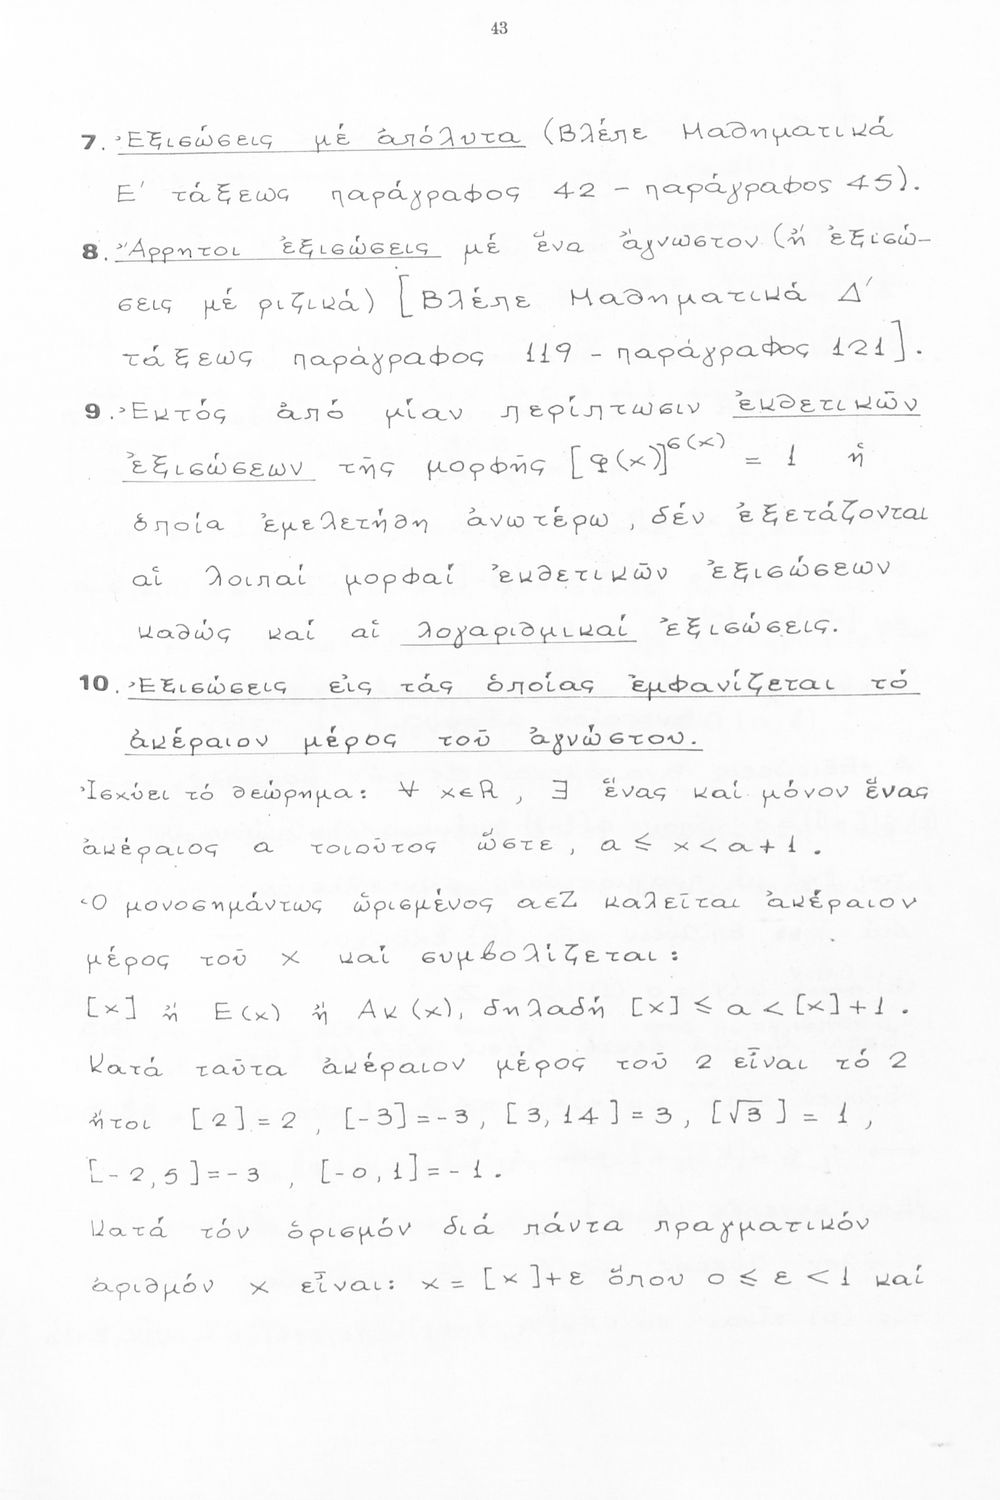 43
7. Ἐξισώσεις μέ ἀπόλυτα (Βλέπε Μαθηματικά
Ε' τάξεως παράγραφος 42 – παράγραφος 45).
8. Ἄρρητοι ἐξισώσεις μέ ἕνα ἄγνωστον (ἤ ἐξισώ-
σεις μέ ριζικά) [Βλέπε Μαθηματικά Δ'
τάξεως παράγραφος 119 – παράγραφος 121].
9. Ἐκτός ἀπό μίαν περίπτωσιν ἐκθετικῶν
ἐξισώσεων τῆς μορφῆς [φ(x)]^σ(x) = 1 ἡ
ὁποία ἐμελετήθη ἀνωτέρω, δέν ἐξετάζονται
αἱ λοιπαί μορφαί ἐκθετικῶν ἐξισώσεων
καθώς καί αἱ λογαριθμικαί ἐξισώσεις.
10. Ἐξισώσεις εἰς τάς ὁποίας ἐμφανίζεται τό
ἀκέραιον μέρος τοῦ ἀγνώστου.
Ἰσχύει τό θεώρημα: ∀ x∈R, ∃ ἕνας καί μόνον ἕνας
ἀκέραιος α τοιοῦτος ὥστε, α ≤ x < α+1.
Ὁ μονοσημάντως ὡρισμένος α∈Z καλεῖται ἀκέραιον
μέρος τοῦ x καί συμβολίζεται:
[x] ἤ E(x) ἤ Ακ(x), δηλαδή [x] ≤ α < [x]+1.
Κατά ταῦτα ἀκέραιον μέρος τοῦ 2 εἶναι τό 2
ἤτοι [2]=2, [-3]=-3, [3,14]=3, [√3]=1,
[-2,5]=-3, [-0,1]=-1.
Κατά τόν ὁρισμόν διά πάντα πραγματικόν
ἀριθμόν x εἶναι: x=[x]+ε ὅπου 0 ≤ ε < 1 καί